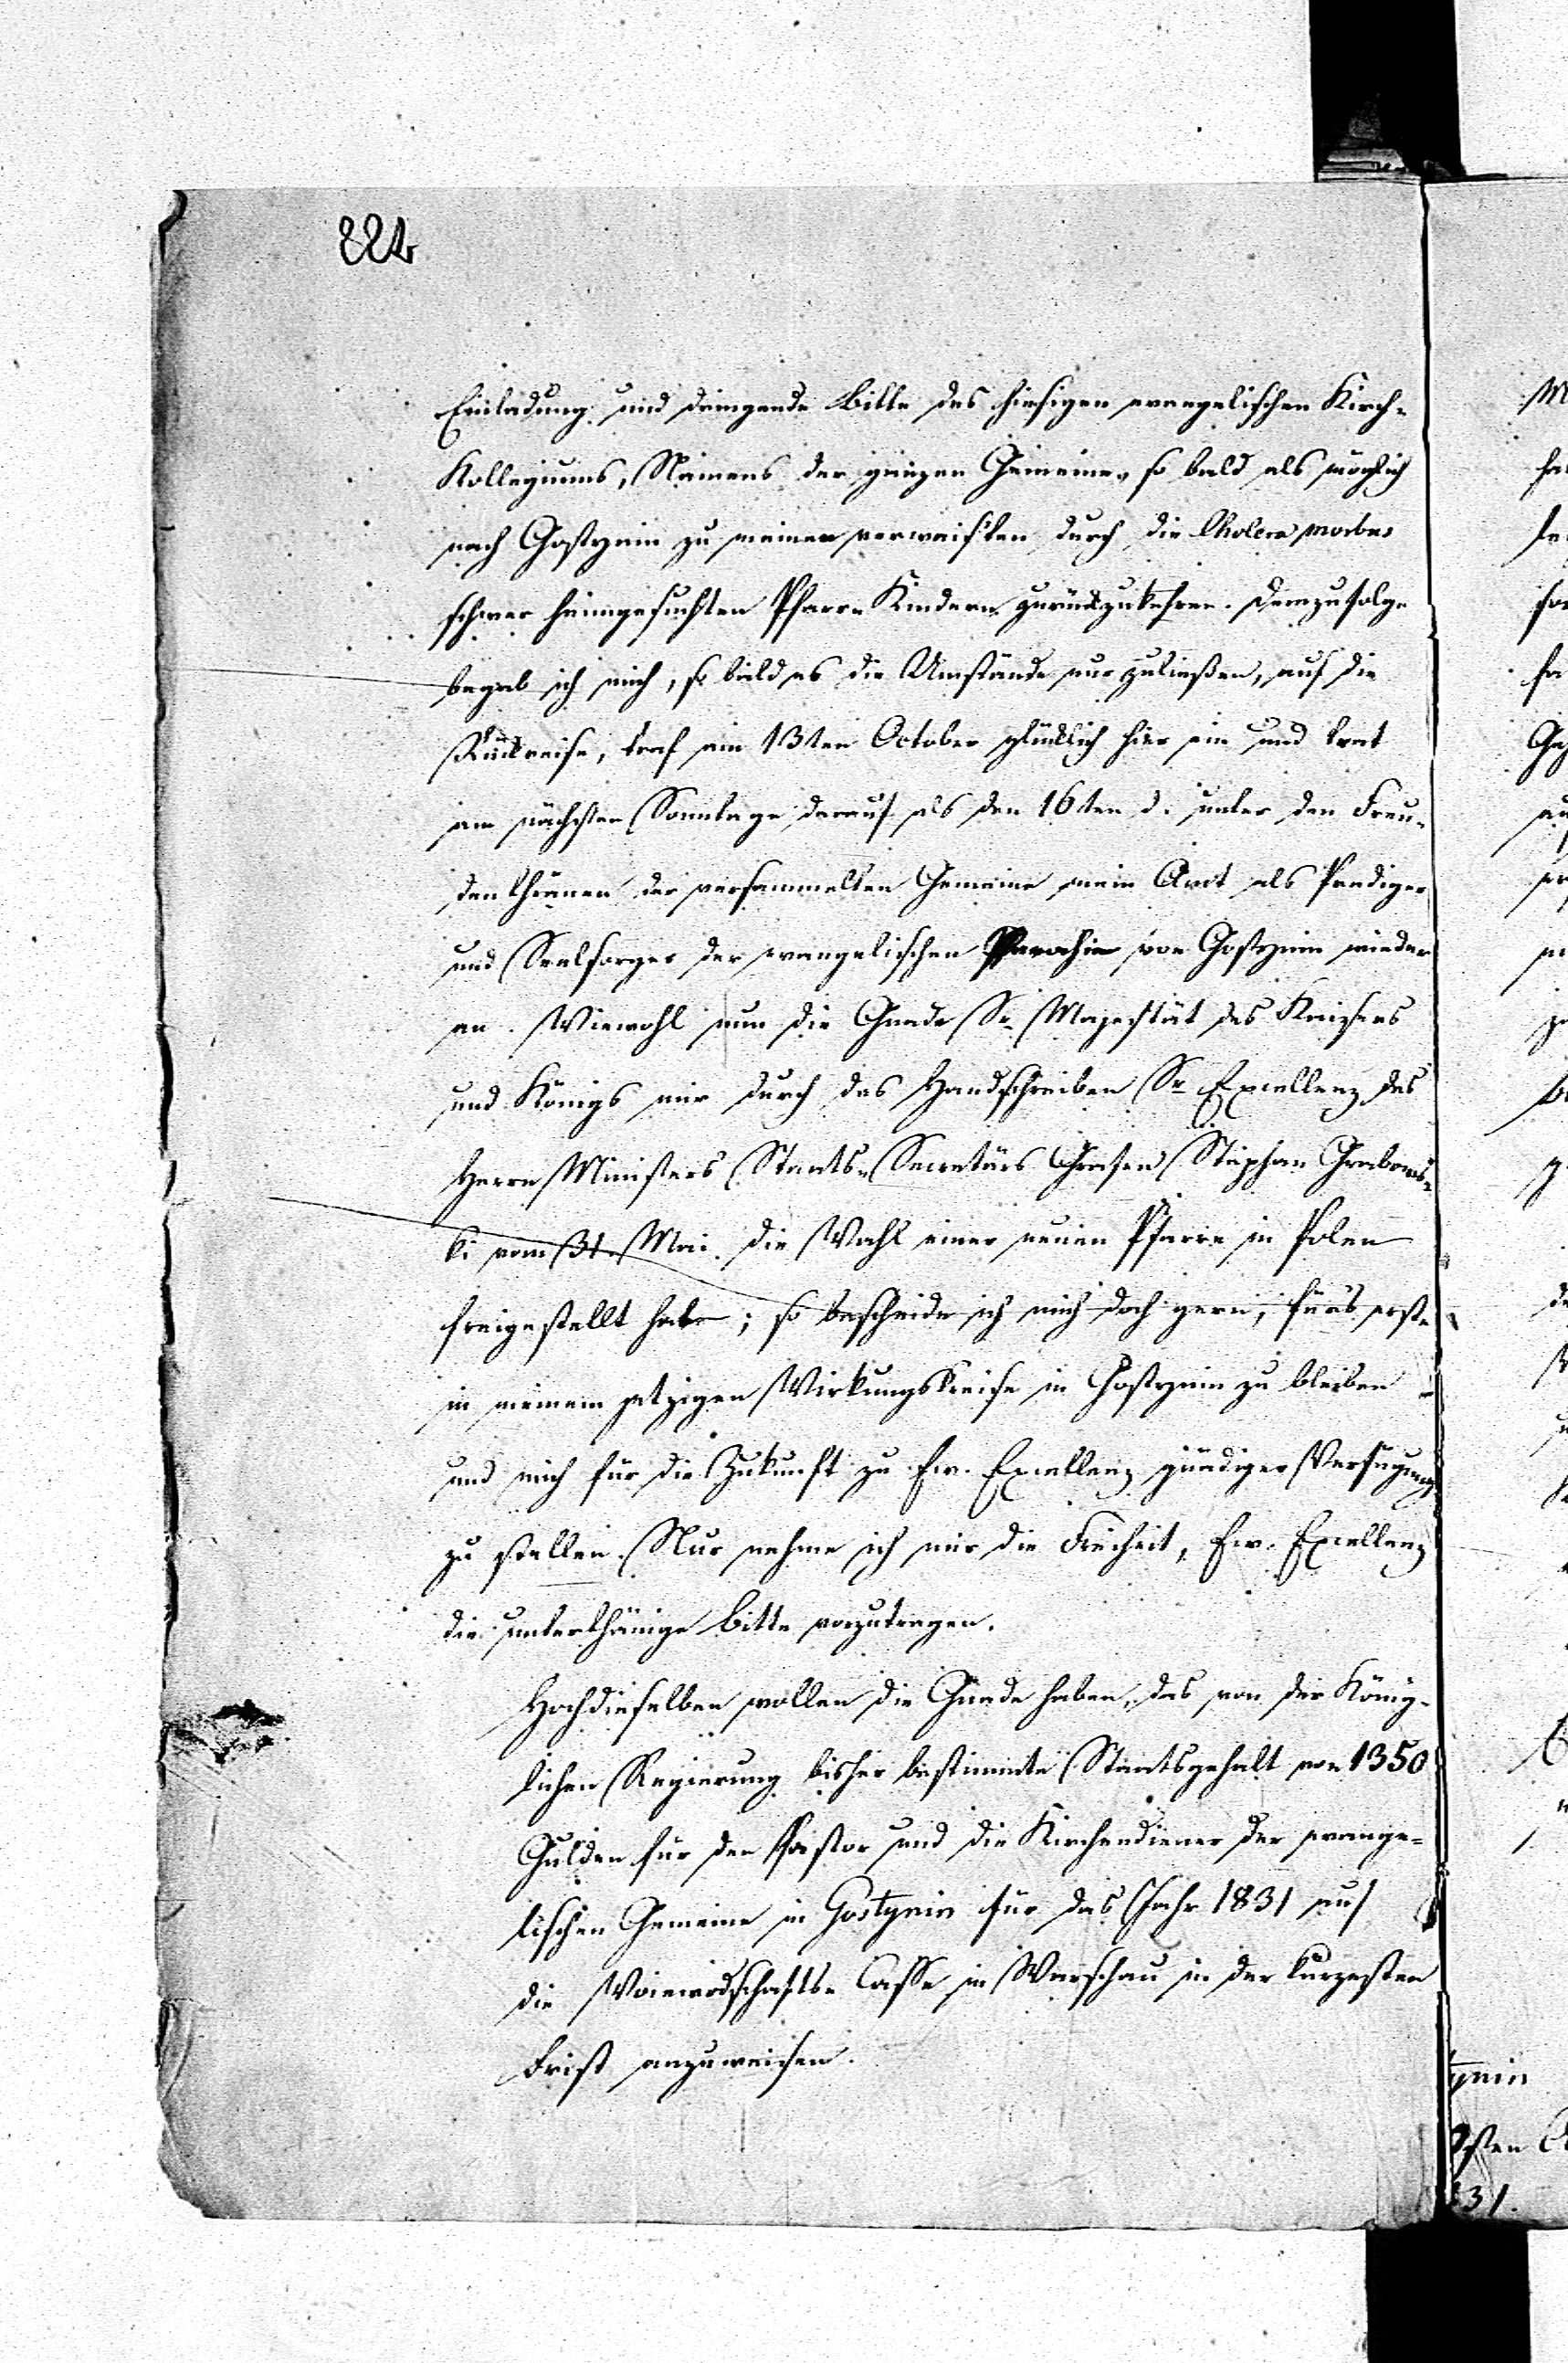 224
Einladung und dringende Bitte des hiesigen evangelischen Kirch-
Kollegiums, Namens der ganzen Gemeine, so bald als möglich
nach Gostynin zu meinen verwaisten durch die Cholera morbus
schwer heimgesuchten Pfarr-Kindern zurückzukehren. Demzufolge
begab ich mich, so bald es die Umstände nur zuließen, auf die
Rückreise, traf am 13ten October glücklich hier ein und trat
am nächsten Sonntage darauf als den 16ten d. unter den Freu-
denthränen der versammelten Gemeine mein Amt als Prediger
und Seelsorger der evangelischen Parochie von Gostynin wieder
an. Wiewohl nun die Gnade Sr. Majestät des Kaisers
und Königs mir durch das Handschreiben Sr. Excellenz des
Herrn Ministers Staats-Secretärs Grafen Stephan Grabows-
ki vom 31. Mai die Wahl einer neuen Pfarre in Polen
freigestellt hat; so bescheide ich mich doch gern, fürs erste
in meinem jetzigen Wirkungskreise in Gostynin zu bleiben
und mich für die Zukunft zu Ew. Excellenz gnädiger Verfügung
zu stellen. Nur nehme ich mir die Freiheit, Ew. Excellenz
die unterthänige Bitte vorzutragen.
Hochdieselben wollen die Gnade haben, das von der König-
lichen Regierung bisher bestimmte Staatsgehalt von 1350
Gulden für den Pastor und die Kirchendiener der evange-
lischen Gemeine in Gostynin für das Jahr 1831 auf
die Woiewodschafts-Casse in Warschau in der kürzesten
Frist anzuweisen.
ynin
sten
31.